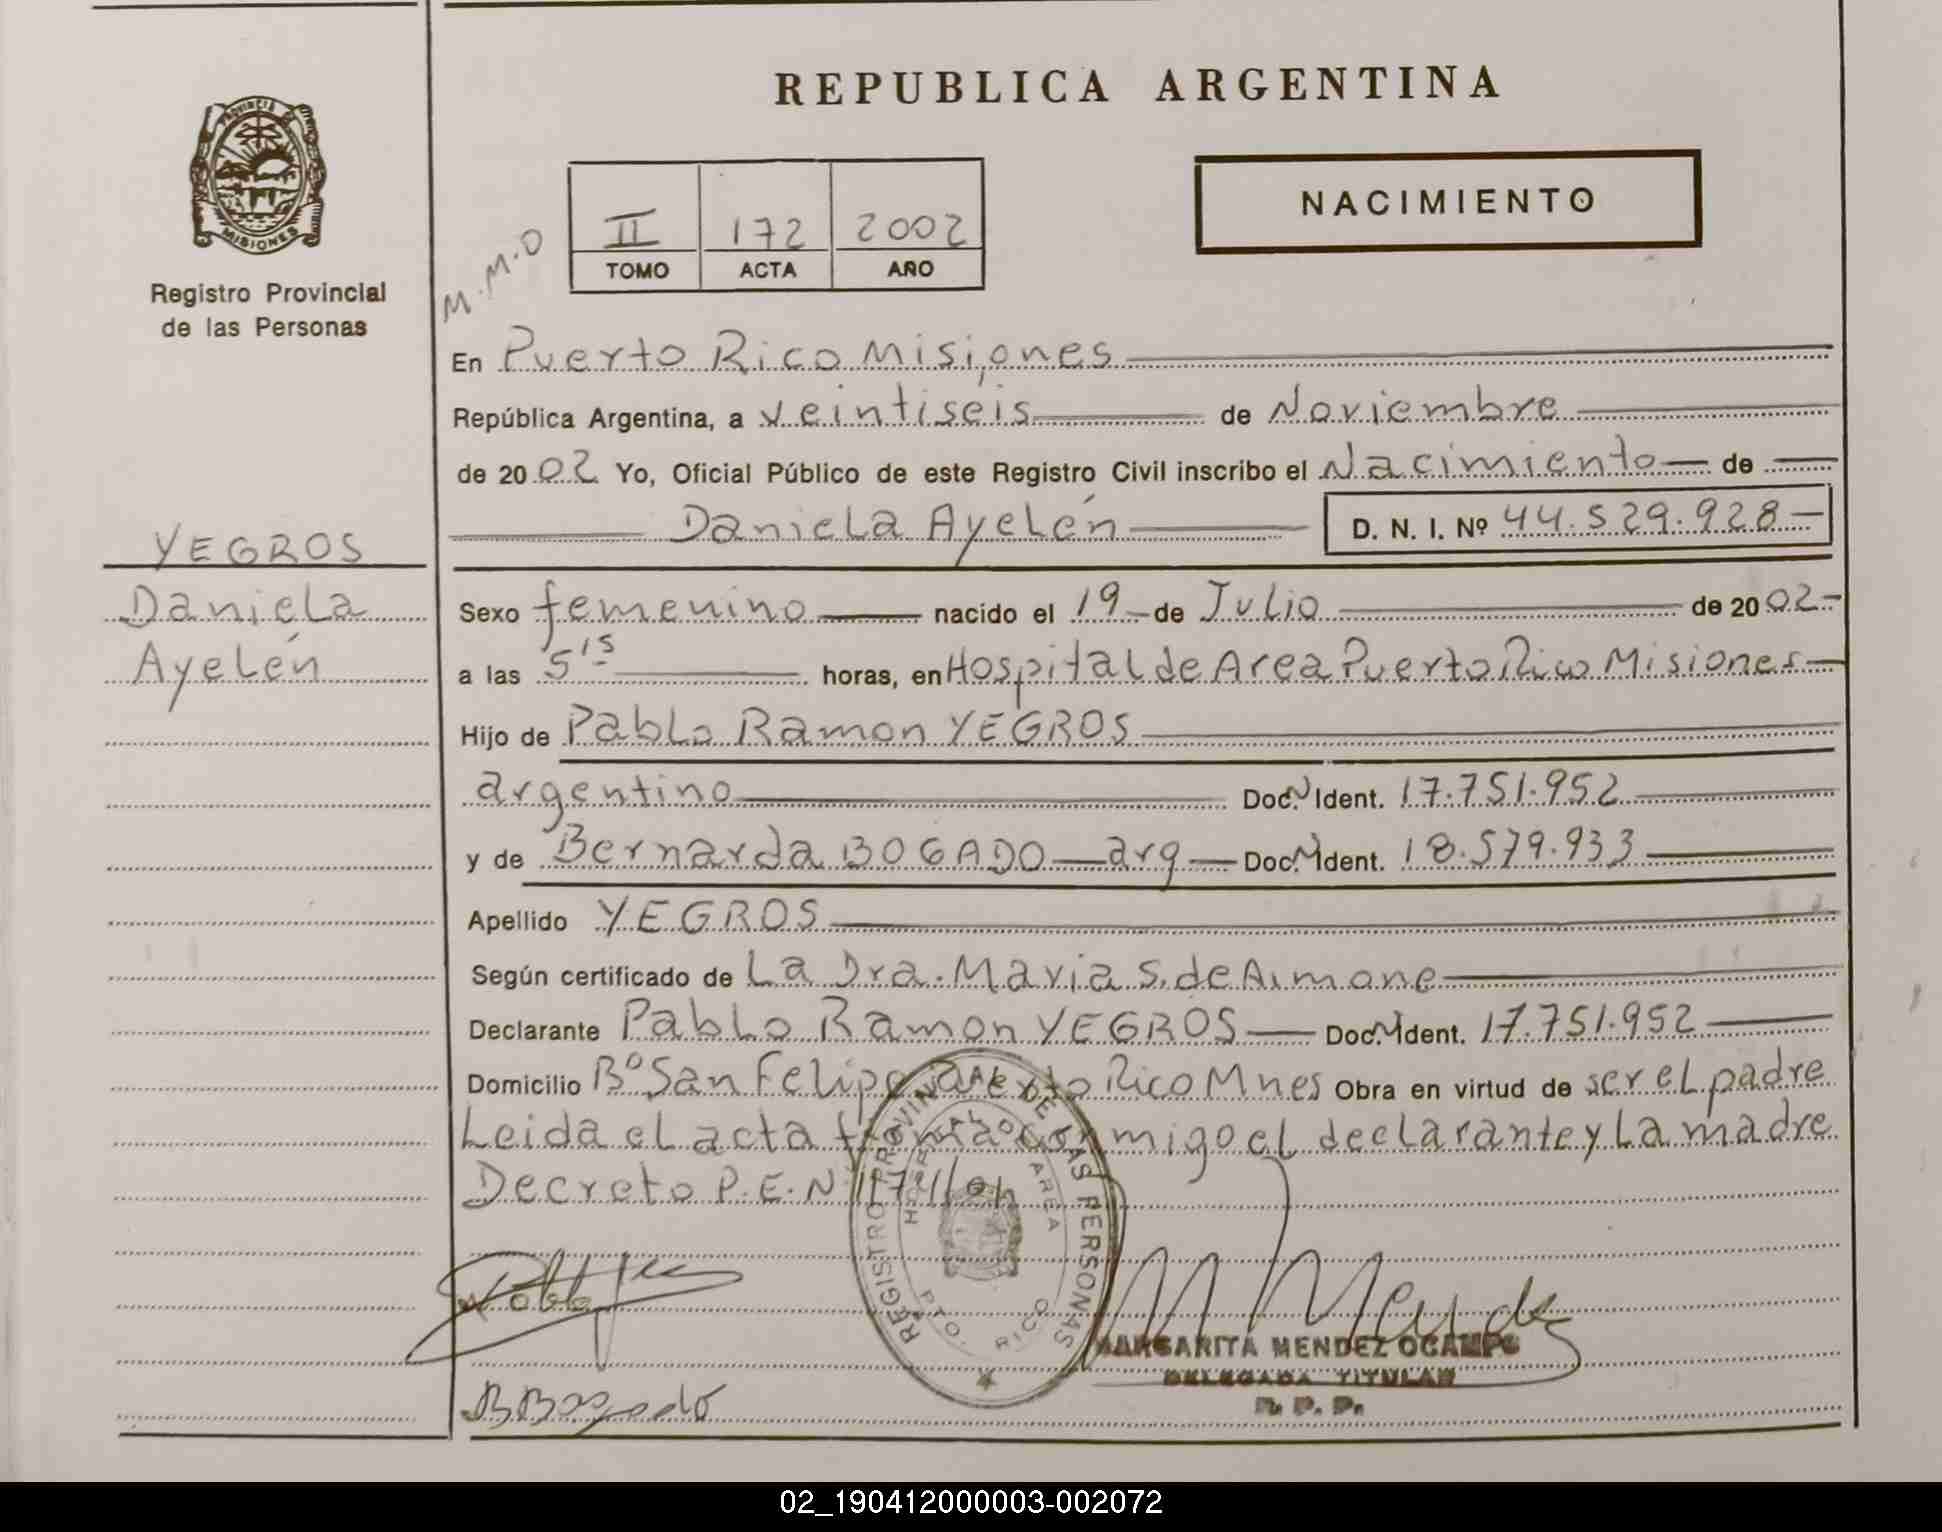 REPUBLICA ARGENTINA
PROVINCIA
MISIONES
Registro Provincial
de las Personas
NACIMIENTO
II 172 2002
TOMO ACTA AÑO
M.M.O
En Puerto Rico Misiones
República Argentina, a veintiseis de Noviembre
de 2002 Yo, Oficial Público de este Registro Civil inscribo el Nacimiento de
Daniela Ayelén D. N. I. Nº 44.529.928
YEGROS
Daniela
Ayelén
Sexo femenino nacido el 19 de Julio de 2002
a las 5 15 horas, en Hospital de Area Puerto Rico Misiones
Hijo de Pablo Ramon YEGROS
argentino Doc. Ident. 17.751.952
y de Bernarda BOGADO arg Doc. Ident. 18.579.933
Apellido YEGROS
Según certificado de La Dra. Maria S. de Aimone
Declarante Pablo Ramon YEGROS Doc. Ident. 17.751.952
Domicilio Bº San Felipe Puerto Rico Mnes Obra en virtud de ser el padre
Leida el acta firma conmigo el declarante y La madre
Decreto P.E.N
REGISTRO PROVINCIAL DE LAS PERSONAS
HOSPITAL DE AREA
PTO. RICO
M Mendez
MARGARITA MENDEZ OCAMPO
DELEGADA TITULAR
R. P. P.
B Bogado
02_190412000003-002072